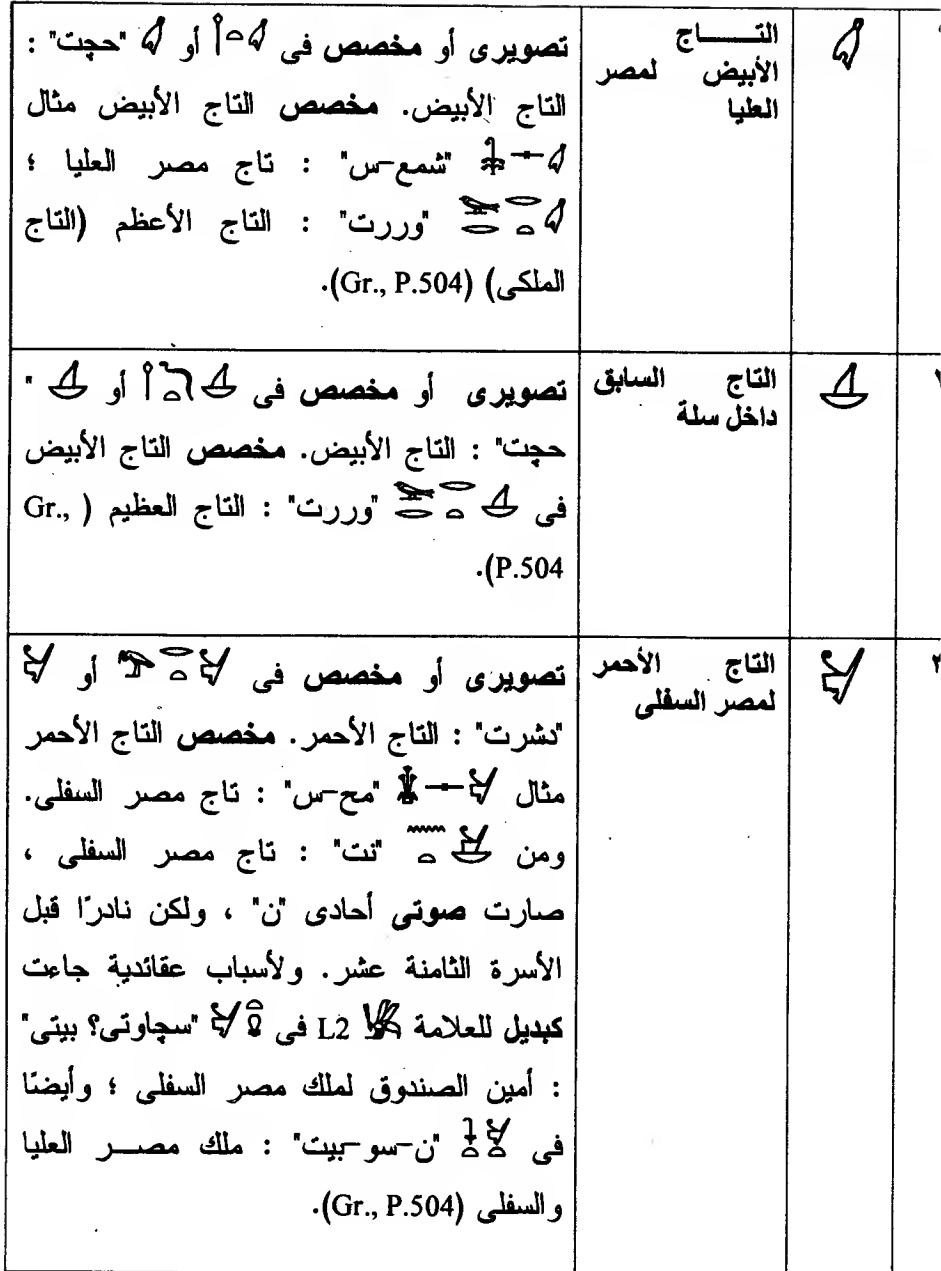 التـــــاج
الأبيض لمصر
العليا
تصويرى أو مخصص فى 𓌉𓏏𓋑 أو 𓋑 "حچت" :
التاج الأبيض. مخصص التاج الأبيض مثال
𓇗𓋴𓋑 "شمع-س" : تاج مصر العليا ؛
𓅨𓂋𓂋𓏏𓋑 "وررت" : التاج الأعظم (التاج
الملكى) (Gr., P.504).
التاج السابق
داخل سلة
تصويرى أو مخصص فى 𓌉𓆓𓏏𓋒 أو 𓋒 "
حچت" : التاج الأبيض. مخصص التاج الأبيض
فى 𓅨𓂋𓂋𓏏𓋒 "وررت" : التاج العظيم (Gr.,
P.504).
التاج الأحمر
لمصر السفلى
تصويرى أو مخصص فى 𓅟𓂋𓏏𓋔 أو 𓋔
"دشرت" : التاج الأحمر. مخصص التاج الأحمر
مثال 𓎔𓋴𓋔 "مح-س" : تاج مصر السفلى.
ومن 𓈖𓏏𓋕 "نت" : تاج مصر السفلى ،
صارت صوتى أحادى "ن" ، ولكن نادرًا قبل
الأسرة الثامنة عشر. ولأسباب عقائدية جاءت
كبديل للعلامة 𓆤 L2 فى 𓋔 "سچاوتى؟ بيتى"
: أمين الصندوق لملك مصر السفلى ؛ وأيضًا
فى 𓇓𓏏𓋔𓏏 "ن-سو-بيت" : ملك مصـــر العليا
والسفلى (Gr., P.504).